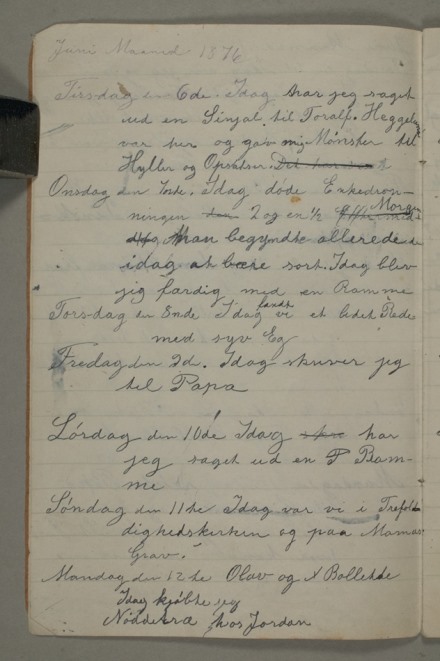 Juni Maaned 1876
Tirsdag den 6de. Idag har jeg saget
ud en Sinjal til Toralf. Heggelund
var her og gav mig Mønster til
Hyller og Opsatser. Det har
Onsdag den 7de. Idag døde Enkedron-
ningen den 2 og en ½ Morgen
Man begyndte allerede
idag at bære sort. Idag blev
jeg færdig med en Ramme
Torsdag den 8nde Idag fandt vi et lidet Rede
med syv Eg
Fredag den 9d. Idag skriver jeg
til Papa
Lørdag den 10de Idag har
jeg saget ud en Ram-
me
Søndag den 11te Idag var vi i Trefol-
dighedskirken og paa Mamas
Grav.
Mandag den 12te Olav og N Bollekde
Idag kjøbte jeg
Nøddetræ hos Jordan